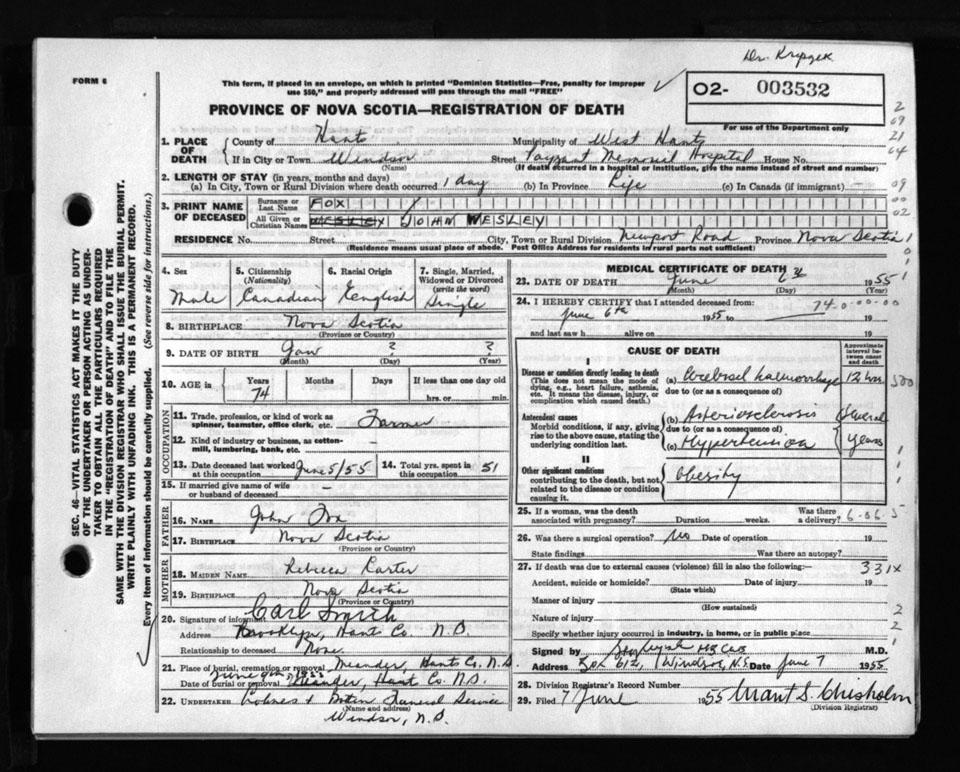 Dr. Krepzek
FORM 6
This form, if placed in an envelope, on which is printed "Dominion Statistics—Free, penalty for improper
use $50," and properly addressed will pass through the mail "FREE"
02- 003532
For use of the Department only
PROVINCE OF NOVA SCOTIA—REGISTRATION OF DEATH
2
09
21
64
09
00
02
1
0
1
1
SEC. 46—VITAL STATISTICS ACT MAKES IT THE DUTY
OF THE UNDERTAKER OR PERSON ACTING AS UNDER-
TAKER TO OBTAIN ALL THE PARTICULARS REQUIRED
IN THE "REGISTRATION OF DEATH" AND TO FILE THE
SAME WITH THE DIVISION REGISTRAR WHO SHALL ISSUE THE BURIAL PERMIT.
WRITE PLAINLY WITH UNFADING INK. THIS IS A PERMANENT RECORD.
Every item of information should be carefully supplied. (See reverse side for instructions.)
1. PLACE OF DEATH County of Hants Municipality of West Hants
If in City or Town Windsor Street Payzant Memorial Hospital House No.
(Name) (If death occurred in a hospital or institution, give the name instead of street and number)
2. LENGTH OF STAY (in years, months and days)
(a) In City, Town or Rural Division where death occurred 1 day (b) In Province Life (c) In Canada (if immigrant) —
3. PRINT NAME OF DECEASED Surname or Last Name FOX
All Given or Christian Names WESLEY JOHN WESLEY
RESIDENCE No. Street City, Town or Rural Division Newport Road Province Nova Scotia
(Residence means usual place of abode. Post Office Address for residents in rural parts not sufficient)
4. Sex 5. Citizenship (Nationality) 6. Racial Origin 7. Single, Married, Widowed or Divorced (write the word)
Male Canadian English Single
8. BIRTHPLACE Nova Scotia
(Province or Country)
9. DATE OF BIRTH ? ?
(Month) (Day) (Year)
10. AGE in Years Months Days If less than one day old
74 hrs. or min.
OCCUPATION
11. Trade, profession, or kind of work as
spinner, teamster, office clerk, etc. Farmer
12. Kind of industry or business, as cotton-
mill, lumbering, bank, etc.
13. Date deceased last worked at this occupation June 5/55 14. Total yrs. spent in this occupation 51
15. If married give name of wife
or husband of deceased —
FATHER
16. NAME John Fox
17. BIRTHPLACE Nova Scotia
(Province or Country)
MOTHER
18. MAIDEN NAME Rebecca Carter
19. BIRTHPLACE Nova Scotia
(Province or Country)
20. Signature of informant Carl Smith
Address Brooklyn, Hant Co. N.S.
Relationship to deceased None.
21. Place of burial, cremation or removal Meander, Hants Co. N.S.
June 9th, 1955
Date of burial or removal Meander, Hant Co. N.S.
22. UNDERTAKER Funeral Service
(Name and address)
Windsor, N.S.
MEDICAL CERTIFICATE OF DEATH
23. DATE OF DEATH June 6 1955
(Month) (Day)
24. I HEREBY CERTIFY that I attended deceased from:
June 6th 1955 to 19
74 0-00-00
and last saw h alive on 19
CAUSE OF DEATH
Approximate interval between onset and death
I
Disease or condition directly leading to death (a) Cerebral haemorrhage 12 hrs
(This does not mean the mode of
dying, e.g., heart failure, asthenia,
etc. It means the disease, injury, or
complication which caused death.)
due to (or as a consequence of)
500
Antecedent causes (b) Arteriosclerosis Several
Morbid conditions, if any, giving
rise to the above cause, stating the
underlying condition last.
due to (or as a consequence of)
(c) Hypertension years
II
Other significant conditions
contributing to the death, but not
related to the disease or condition
causing it.
Obesity
1
1
1
25. If a woman, was the death
associated with pregnancy? Duration weeks. Was there a delivery?
6-06-5
26. Was there a surgical operation? No Date of operation 19
State findings Was there an autopsy?
27. If death was due to external causes (violence) fill in also the following:—
331x
Accident, suicide or homicide? Date of injury 19
(State which)
Manner of injury
(How sustained)
Nature of injury
Specify whether injury occurred in industry, in home, or in public place
2
2
1
Signed by M.D.
Address Box 612, Windsor, N.S. Date June 7 1955
28. Division Registrar's Record Number
29. Filed 7 June 1955 Grant S. Chisholm
(Division Registrar)